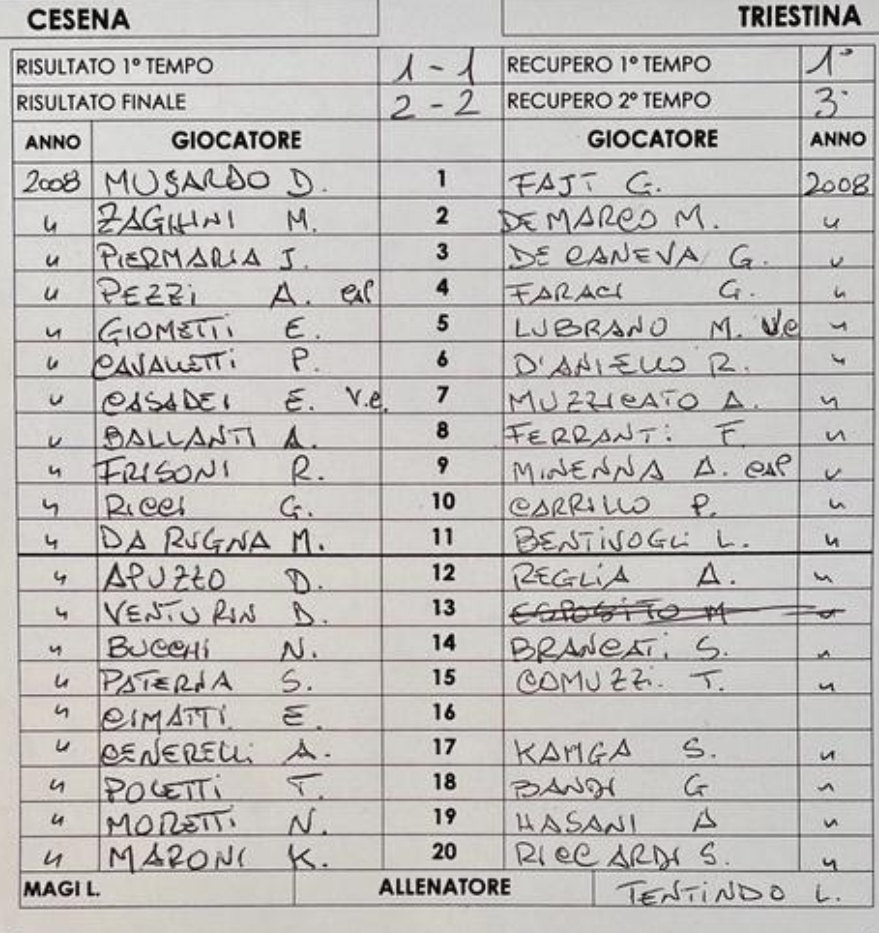 CESENA TRIESTINA
RISULTATO 1° TEMPO 1 - 1 RECUPERO 1° TEMPO 1'
RISULTATO FINALE 2 - 2 RECUPERO 2° TEMPO 3'
ANNO GIOCATORE GIOCATORE ANNO
2008 MUSARDO D. 1 FAJT G. 2008
" ZAGHINI M. 2 DE MARCO M. "
" PIERMARIA J. 3 DE CANEVA G. "
" PEZZI A. cap 4 FARACI G. "
" GIOMETTI E. 5 LUBRANO M. Vc "
" CAVALLETTI P. 6 D'ANIELLO R. "
" CASADEI E. V.c. 7 MUZZICATO A. "
" BALLANTI A. 8 FERRANTI F. "
" FRISONI R. 9 MINENNA A. cap "
" RICCI G. 10 CARRILLO P. "
" DA RUGNA M. 11 BENTIVOGLI L. "
" APUZZO D. 12 REGLIA A. "
" VENTURIN D. 13 ESPOSITO M "
" BUCCHI N. 14 BRANCATI S. "
" PATERNA S. 15 COMUZZI T. "
" CIMATTI E. 16
" CENERELLI A. 17 KAMGA S. "
" POLETTI T. 18 BANDI G "
" MORETTI N. 19 HASANI A "
" MARONI K. 20 RICCARDI S. "
MAGI L. ALLENATORE TENTINDO L.